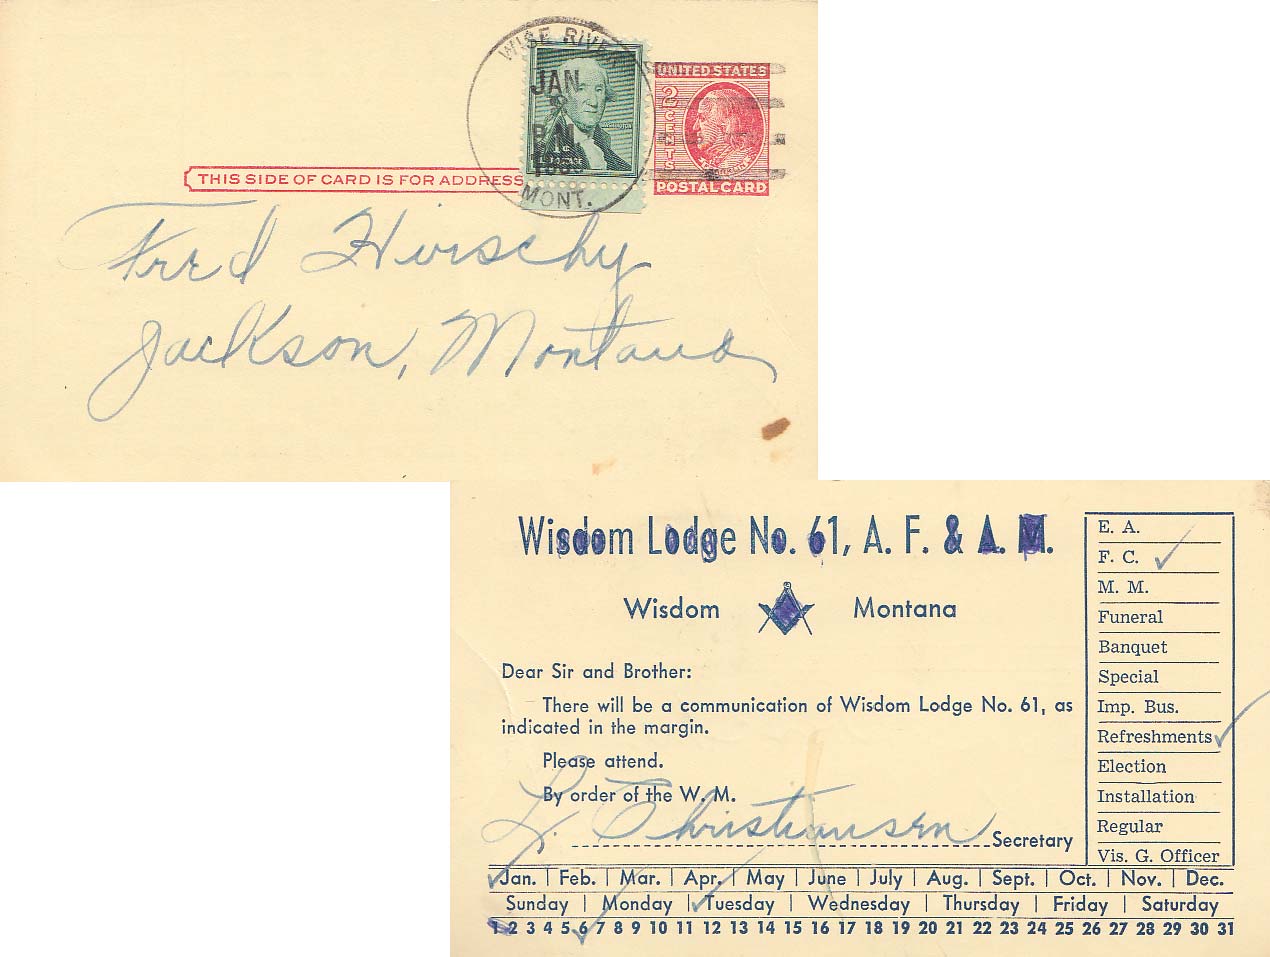 WISE RIVER
JAN
2
P.M.
MONT.
WASHINGTON
1¢
U.S. POSTAGE
UNITED STATES
2 CENTS
POSTAL CARD
THIS SIDE OF CARD IS FOR ADDRESS
Fred Hirschy
Jackson, Montana
Wisdom Lodge No. 61, A. F. & A. M.
Wisdom Montana
Dear Sir and Brother:
There will be a communication of Wisdom Lodge No. 61, as
indicated in the margin.
Please attend.
By order of the W. M.
L. Christiansen Secretary
E. A.
F. C. ✓
M. M.
Funeral
Banquet
Special
Imp. Bus.
Refreshments ✓
Election
Installation
Regular
Vis. G. Officer
Jan. | Feb. | Mar. | Apr. | May | June | July | Aug. | Sept. | Oct. | Nov. | Dec.
Sunday | Monday | Tuesday | Wednesday | Thursday | Friday | Saturday
1 2 3 4 5 6 7 8 9 10 11 12 13 14 15 16 17 18 19 20 21 22 23 24 25 26 27 28 29 30 31